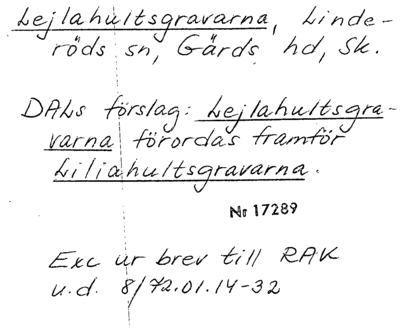 Lejlahultsgravarna, Linde-
röds sn, Gärds hd, Sk.
DALs förslag: Lejlahultsgra-
varna förordas framför
Liliahultsgravarna.
Nr 17289
Exc ur brev till RAK
u.d. 8/72.01.14-32